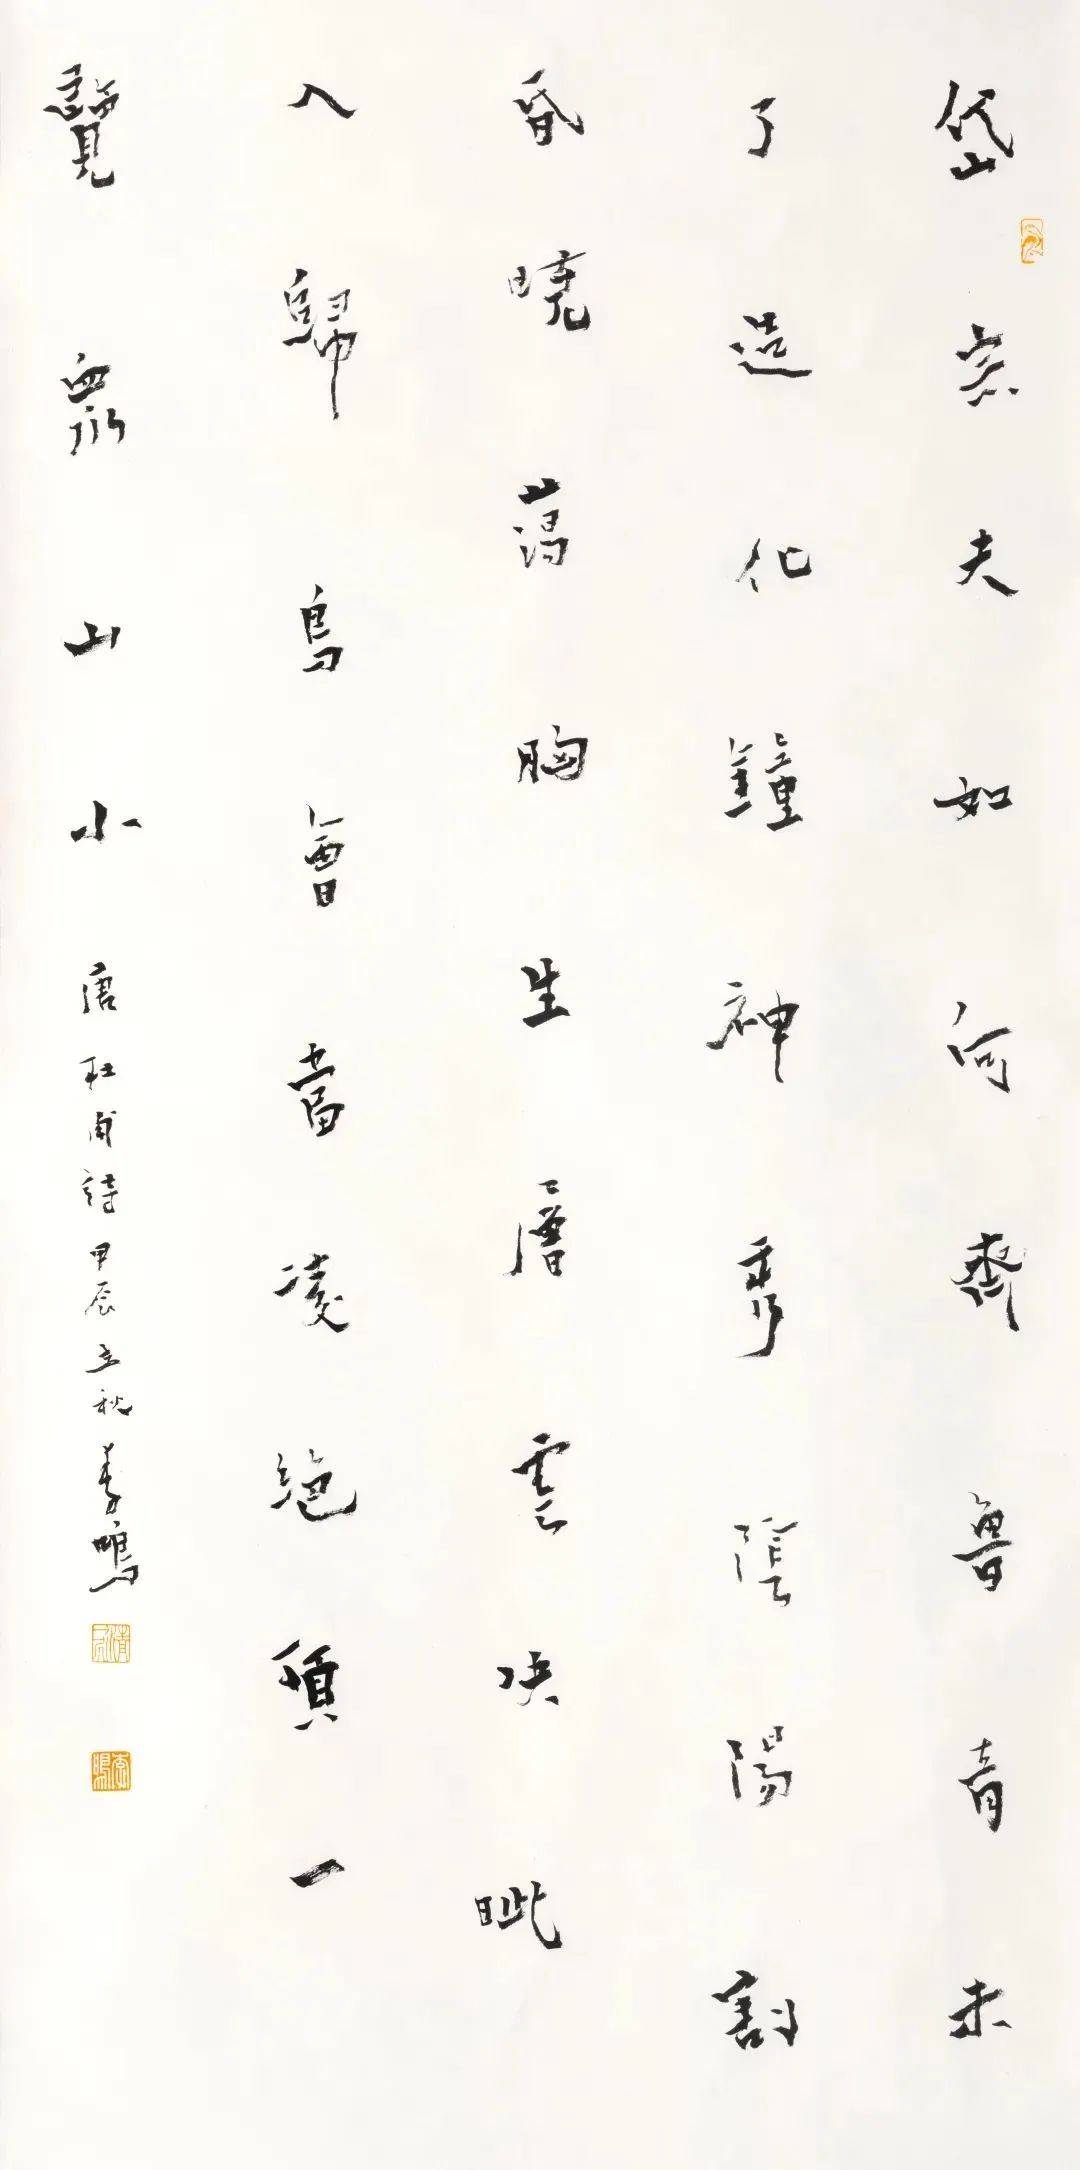 岱宗夫如何齊魯青未
了造化鐘神秀陰陽割
昏曉蕩胸生層雲决眦
入歸鳥會當凌絕頂一
覽衆山小 唐杜甫詩甲辰立秋李鳴
李鳴